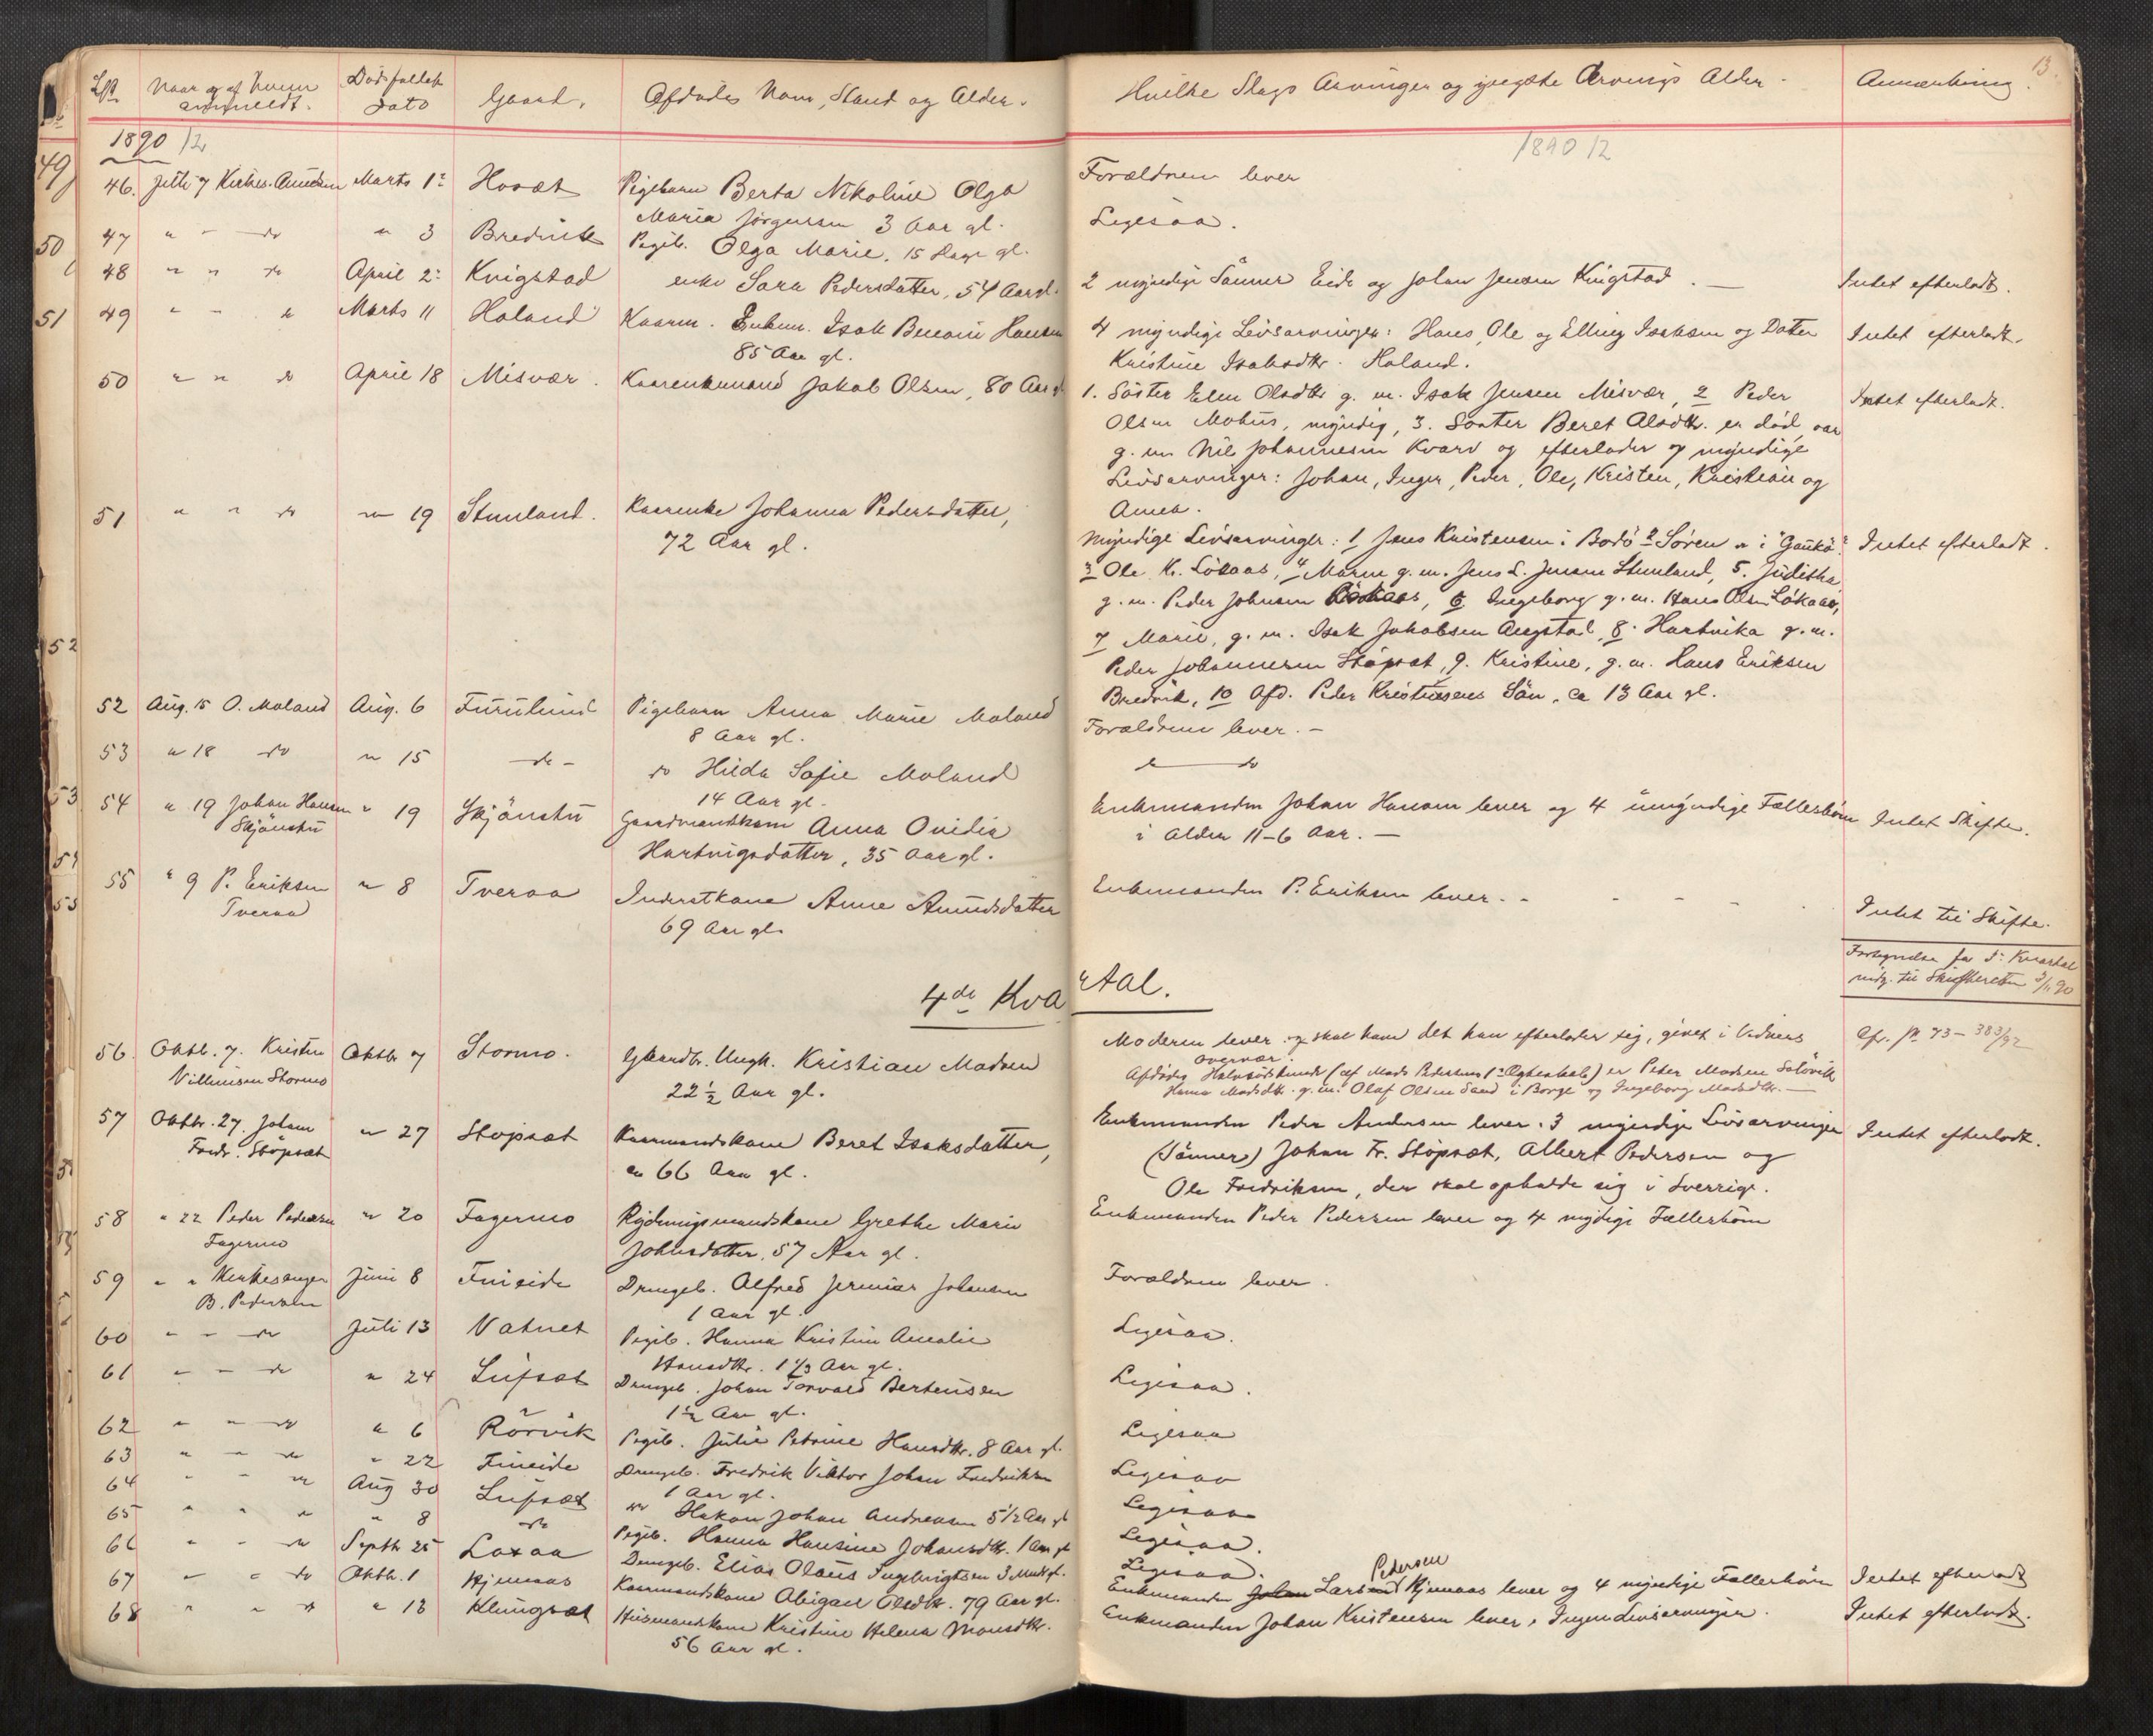 13.
Naar og af hvem anmeldt. Dødsfaldets Dato Gaard. Afdødes Navn, Stand og Alder. Hvilke Slags Arvinger og Arvings Alder Anmærkning.
1890 1890
46. Juli 7 Kirkes. Marts 1 Pigebarn Berta Nikoline Olga Forældrene lever
Maria Jørgensen 3 Aar gl.
47 " - do " 3 Bredvik Pigeb. Olga Marie, 15 Dage gl. Ligesaa.
48 " " do April 2 Knigstad enke Sara Pedersdatter, 54 Aar gl. 2 myndige Sönner Eide og Johan Jensen Knigstad. — Intet efterladt.
49 " - " Marts 11 Haland Kaarm. Enkem. Isak Hansen 4 myndige Livsarvinger: Hans, Ole og Elling Isaksen og Datter Intet efterladt.
85 Aar gl. Kristine Isaksdtr. Haland.
50 " " do April 18 Misvær. Kaarenkemand Jakob Olsen, 80 Aar gl 1. Söster Elen Olsdtr g. m. Isak Jensen Misvær, 2 Peder Intet efterladt.
Olsen Mohus, myndig, 3. Søster Beret Olsdtr. er död, var
g. m. Nils Johannesen Kvarv og efterlader 7 myndige
Livsarvinger: Johan, Inger, Peder, Ole, Kristen, Kristian og
Anna.
51 " " do " 19 Stimland. Kaarenke Johanna Pedersdatter, Myndige Livsarvinger: 1 Jens Kristensen i Bodö 2 Sören " i Intet efterladt.
72 Aar gl. 3 Ole K. Lökaas, 4 Maren g. m. Jens L. Jensen Stimland, 5. Juditha
g. m. Peder Johnsen, 6 Ingeborg g. m. Hans Olsen Lökaas,
7 Marie, g. m. Isak Jakobsen Angstad, 8. Hartvika g. m.
Peder Johannesen Stöpsæt, 9. Kristine, g. m. Hans Eriksen
Bredvik, 10 Afd. Peder Kristensens Sön, ca 13 Aar gl.
52 Aug. 15 O. Moland Aug. 6 Furulund Pigebarn Anna Marie Moland Forældrene lever. -
8 Aar gl.
53 " 18 do " 15 do - do Hilda Sofie Moland " do
14 Aar gl.
54 " 19 Johan Hansen " 19 Skjönstu Gaardmandskone Anna Ovidia Enkemanden Johan Hansen lever og 4 umyndige Fællesbörn Intet Skifte.
Skjönstu Hartvigsdatter, 35 Aar gl. i Alder 11-6 Aar. —
55 " 9 P. Eriksen " 8 Tveraa Inderstkone Anne Amundsdatter Enkemanden P. Eriksen lever. - Intet til Skifte.
Tveraa 69 Aar gl.
Fortegnelse for 3 Kvartal
indg. til Skifteretten 3/11 90
4de Kvartal.
56. Oktb. 7. Kristen Oktbr 7 Stormo. Gaardbr. Ungk. Kristian Madsen Moderen lever og skal have det han efterlader sig, givet i Vidners Cfr. No 73- 383/92
Villumsen Stormo 22 1/2 Aar gl. overvær.
Afdödes Halvsöskende (af Mads Pedersens 1 Ægteskab) er Peter Madsen Solövik
Hanna Madsdtr. g. m. Olaf Olsen Sand i Borge og Ingeborg Madsdtr. —
57 Oktbr. 27. Johan " 27 Stopsæt Kaarmandskone Beret Isaksdatter, Enkemanden Peder Andersen lever. 3 myndige Livsarvinger Intet efterladt.
Fredr. Stöpsæt ca 66 Aar gl. (Sönner) Johan Fr. Stöpsæt, Albert Pedersen og
Ole Fredriksen, der skal opholde sig i Sverrige.
58 " 22 Peder Pedersen " 20 Fagermo Rydningsmandskone Grethe Marie Enkemanden Peder Pedersen lever og 4 mydige Fællesbörn
Fagermo Johnsdatter, 57 Aar gl.
59 " " Kirkesanger Juni 8 Fineide Drengeb. Alfred Jermias Johansen Forældrene lever.
B. Pedersen 1 Aar gl.
60 " - do Juli 13 Vatnet Pigeb. Hanna Kristine Amalie Ligesaa.
Hansdtr. 1 1/3 Aar gl.
61 " - do " 24 Lufsæt Drengeb. Johan Torvald Bertensen Ligesaa.
1 1/2 Aar gl.
62 " " do " 6 Rörvik Pigeb. Julie Petrine Hansdtr. 8 Aar gl. Ligesaa
63 " - do " 22 Fineide Drengeb. Fredrik Viktor Johan Fredriksen Ligesaa
1 Aar gl.
64 " - do Aug 30 Lufsæt do Hakon Johan Andreasen 5 1/2 Aar gl Ligesaa
65 " " " " 8 do Pigeb. Hanna Hansine Johansdtr. 1 Aar gl Ligesaa.
66 " - do Septbr 25 Laxaa Drengeb. Elias Olaus Ingebrigtsen 3 Mndr gl. Ligesaa.
67 " " do Oktbr. 1 Hjemaas Kaarmandskone Abigael Olsdtr. 79 Aar gl. Enkemanden Lars Pedersen Hjemaas lever og 4 myndige Fællesbörn Intet efterladt
68 " " do " 13 Klungsæt Husmandskone Kristine Helena Monsdtr. Enkemanden Johan Kristensen lever, Ingen Livsarvinger. Intet efterladt.
56 Aar gl.